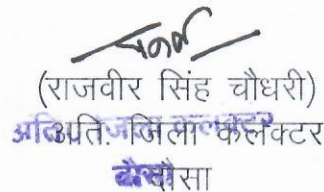 (राजवीर सिंह चौधरी)
अति. जिला कलेक्टर
दौसा